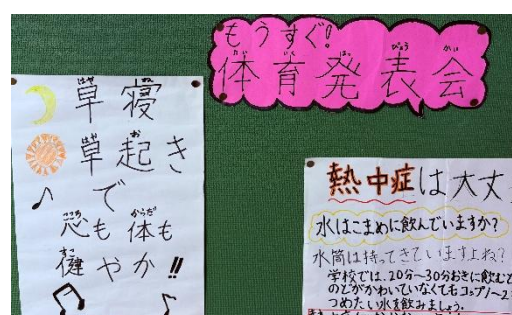 もうすぐ!
体育発表会
草寝
草起き
で
心も体も
健やか!!
熱中症は大丈
水はこまめに飲んでいますか?
水筒は持ってきていますよね?
学校では、20分~30分おきに飲むと
のどがかわいていなくてもコップ1~2
つめたい水を飲みましょう。